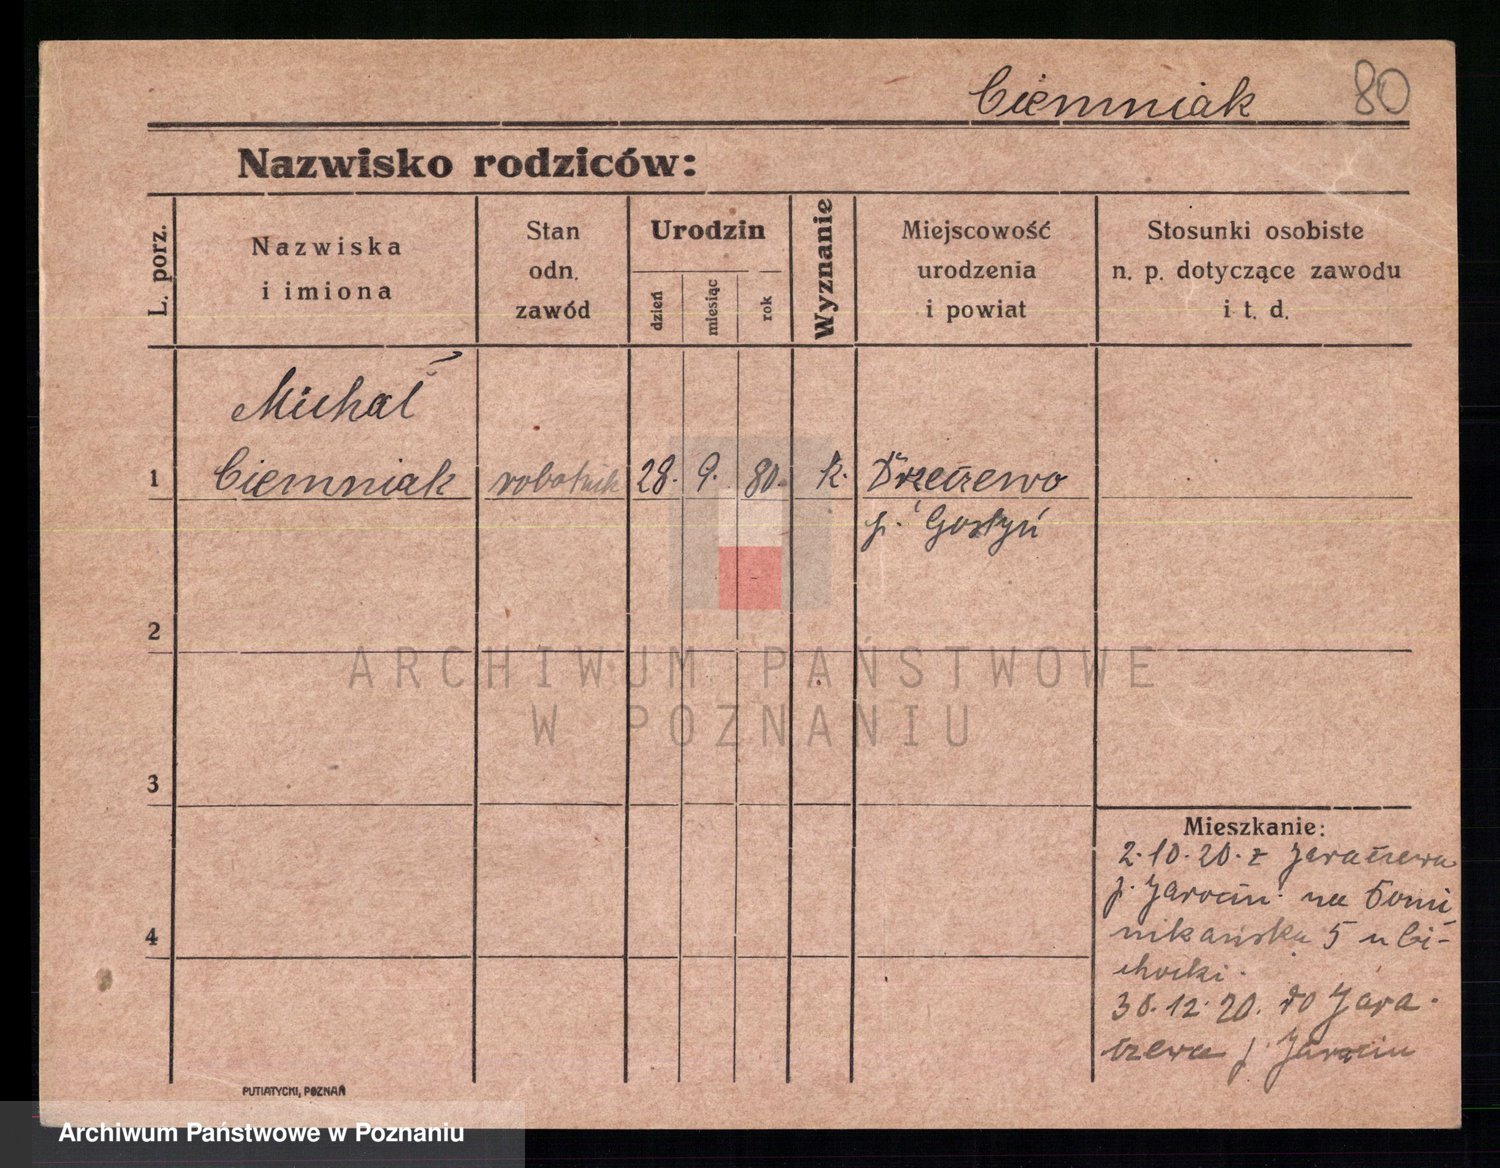 Ciemniak 80
Nazwisko rodziców:
L. porz.
Nazwiska
i imiona
Stan
odn.
zawód
Urodzin
dzień
miesiąc
rok
Wyznanie
Miejscowość
urodzenia
i powiat
Stosunki osobiste
n. p. dotyczące zawodu
i t. d.
Michał
1 Ciemniak robotnik 28. 9. 80. k. Drzeczewo
p. Gostyń
2
3
4
ARCHIWUM PAŃSTWOWE
W POZNANIU
Mieszkanie:
2.10.20. z Jaraczewa
p. Jarocin. na Domi
nikańska 5 u Ci-
chocki.
30.12.20. do Jara-
czewa p. Jarocin
PUTIATYCKI, POZNAŃ
Archiwum Państwowe w Poznaniu